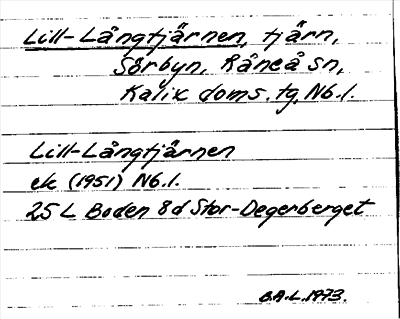 Lill-Långtjärnen, tjärn,
Sörbyn, Råneå sn,
Kalix doms. tg, Nb. l.
Lill-Långtjärnen
ek (1951) Nb. l.
25 L Boden 8d Stor-Degerberget
B.A.L. 1973.